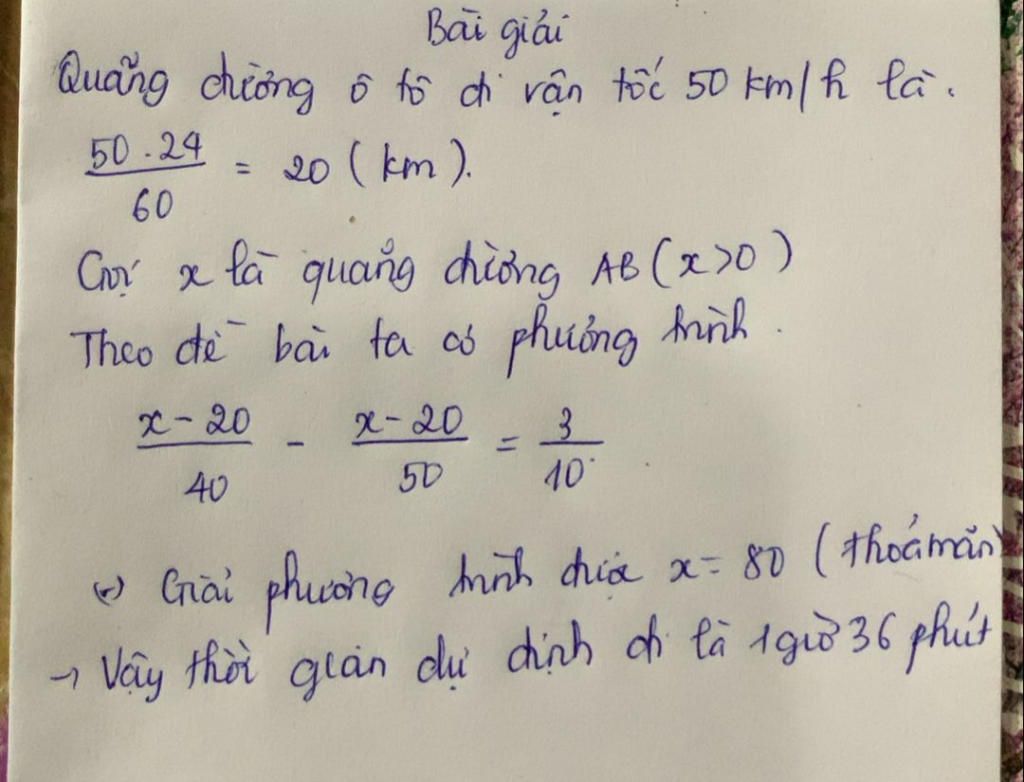 Bài giải
Quãng đường ô tô đi vận tốc 50 km/h là.
50.24/60 = 20 (km).
Gọi x là quãng đường AB (x>0)
Theo đề bài ta có phương trình.
x-20/40 - x-20/50 = 3/10
Giải phương trình được x = 80 (thoả mãn)
→ Vậy thời gian dự định đi là 1 giờ 36 phút